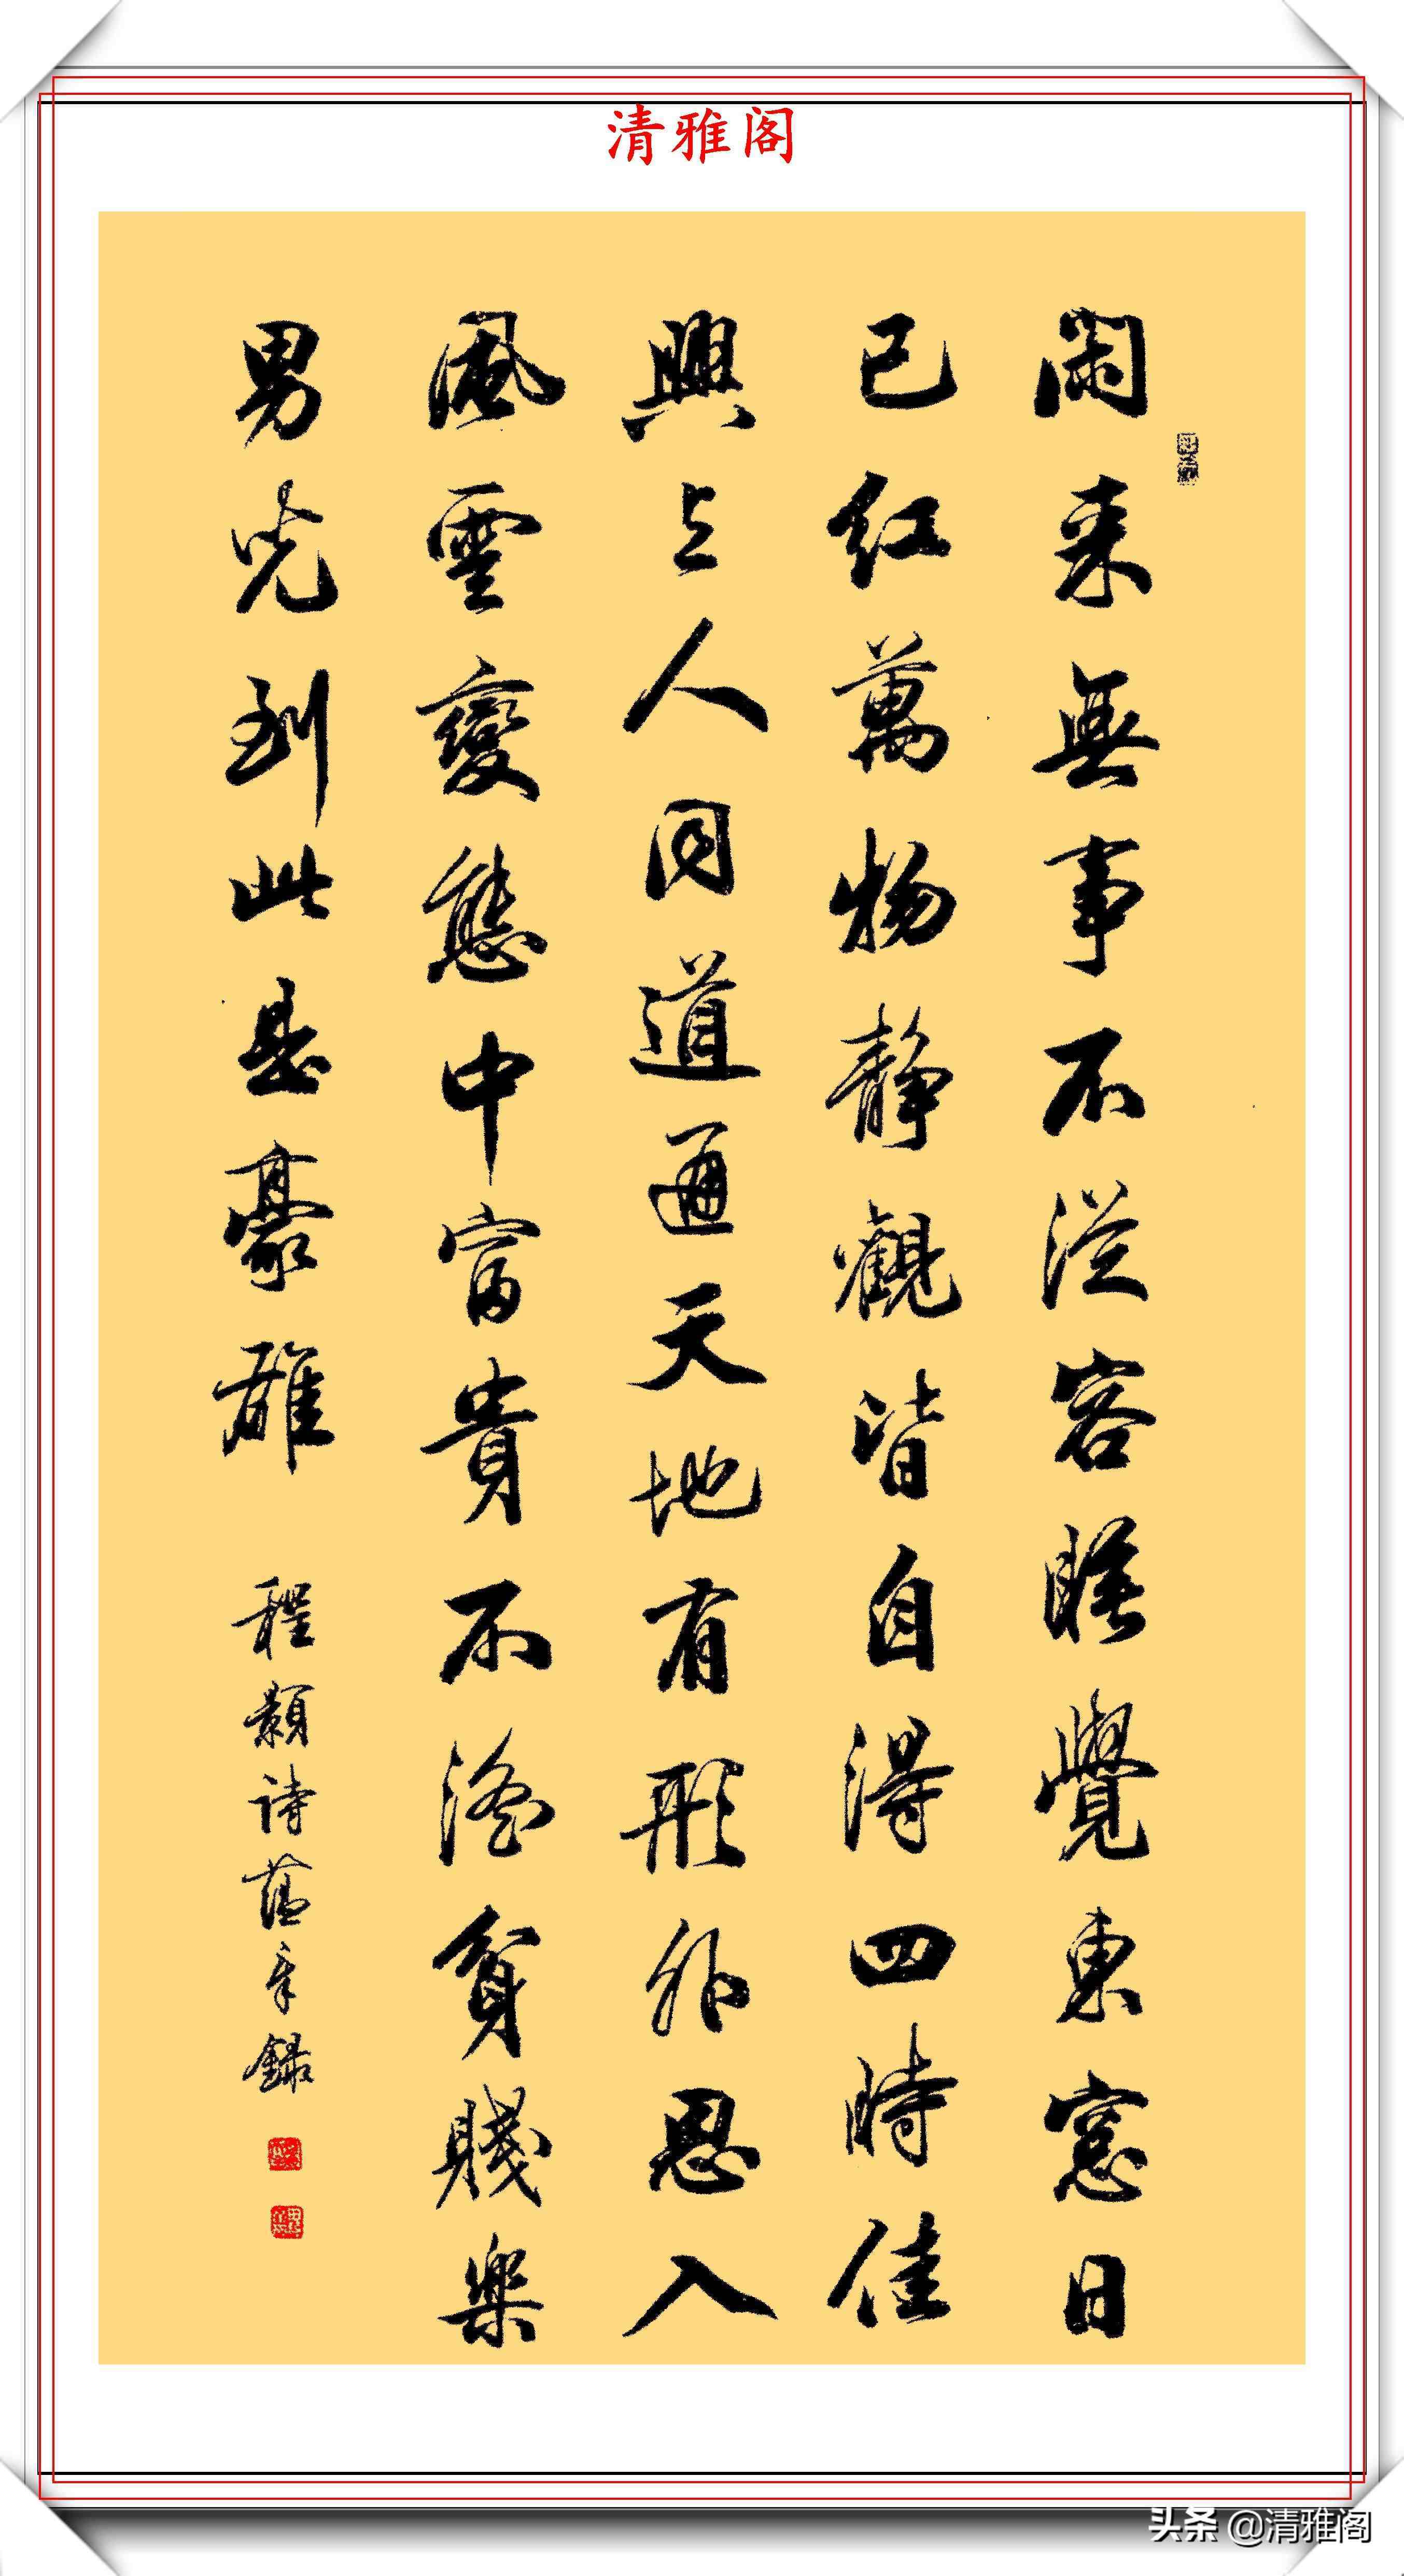 清雅阁
閑来無事不從容睡覺東窓日
已紅萬物靜觀皆自得四時佳
興与人同道通天地有形外思入
風雲變態中富貴不淫貧賤樂
男兒到此是豪雄
程顥詩 錄
头条 @清雅阁